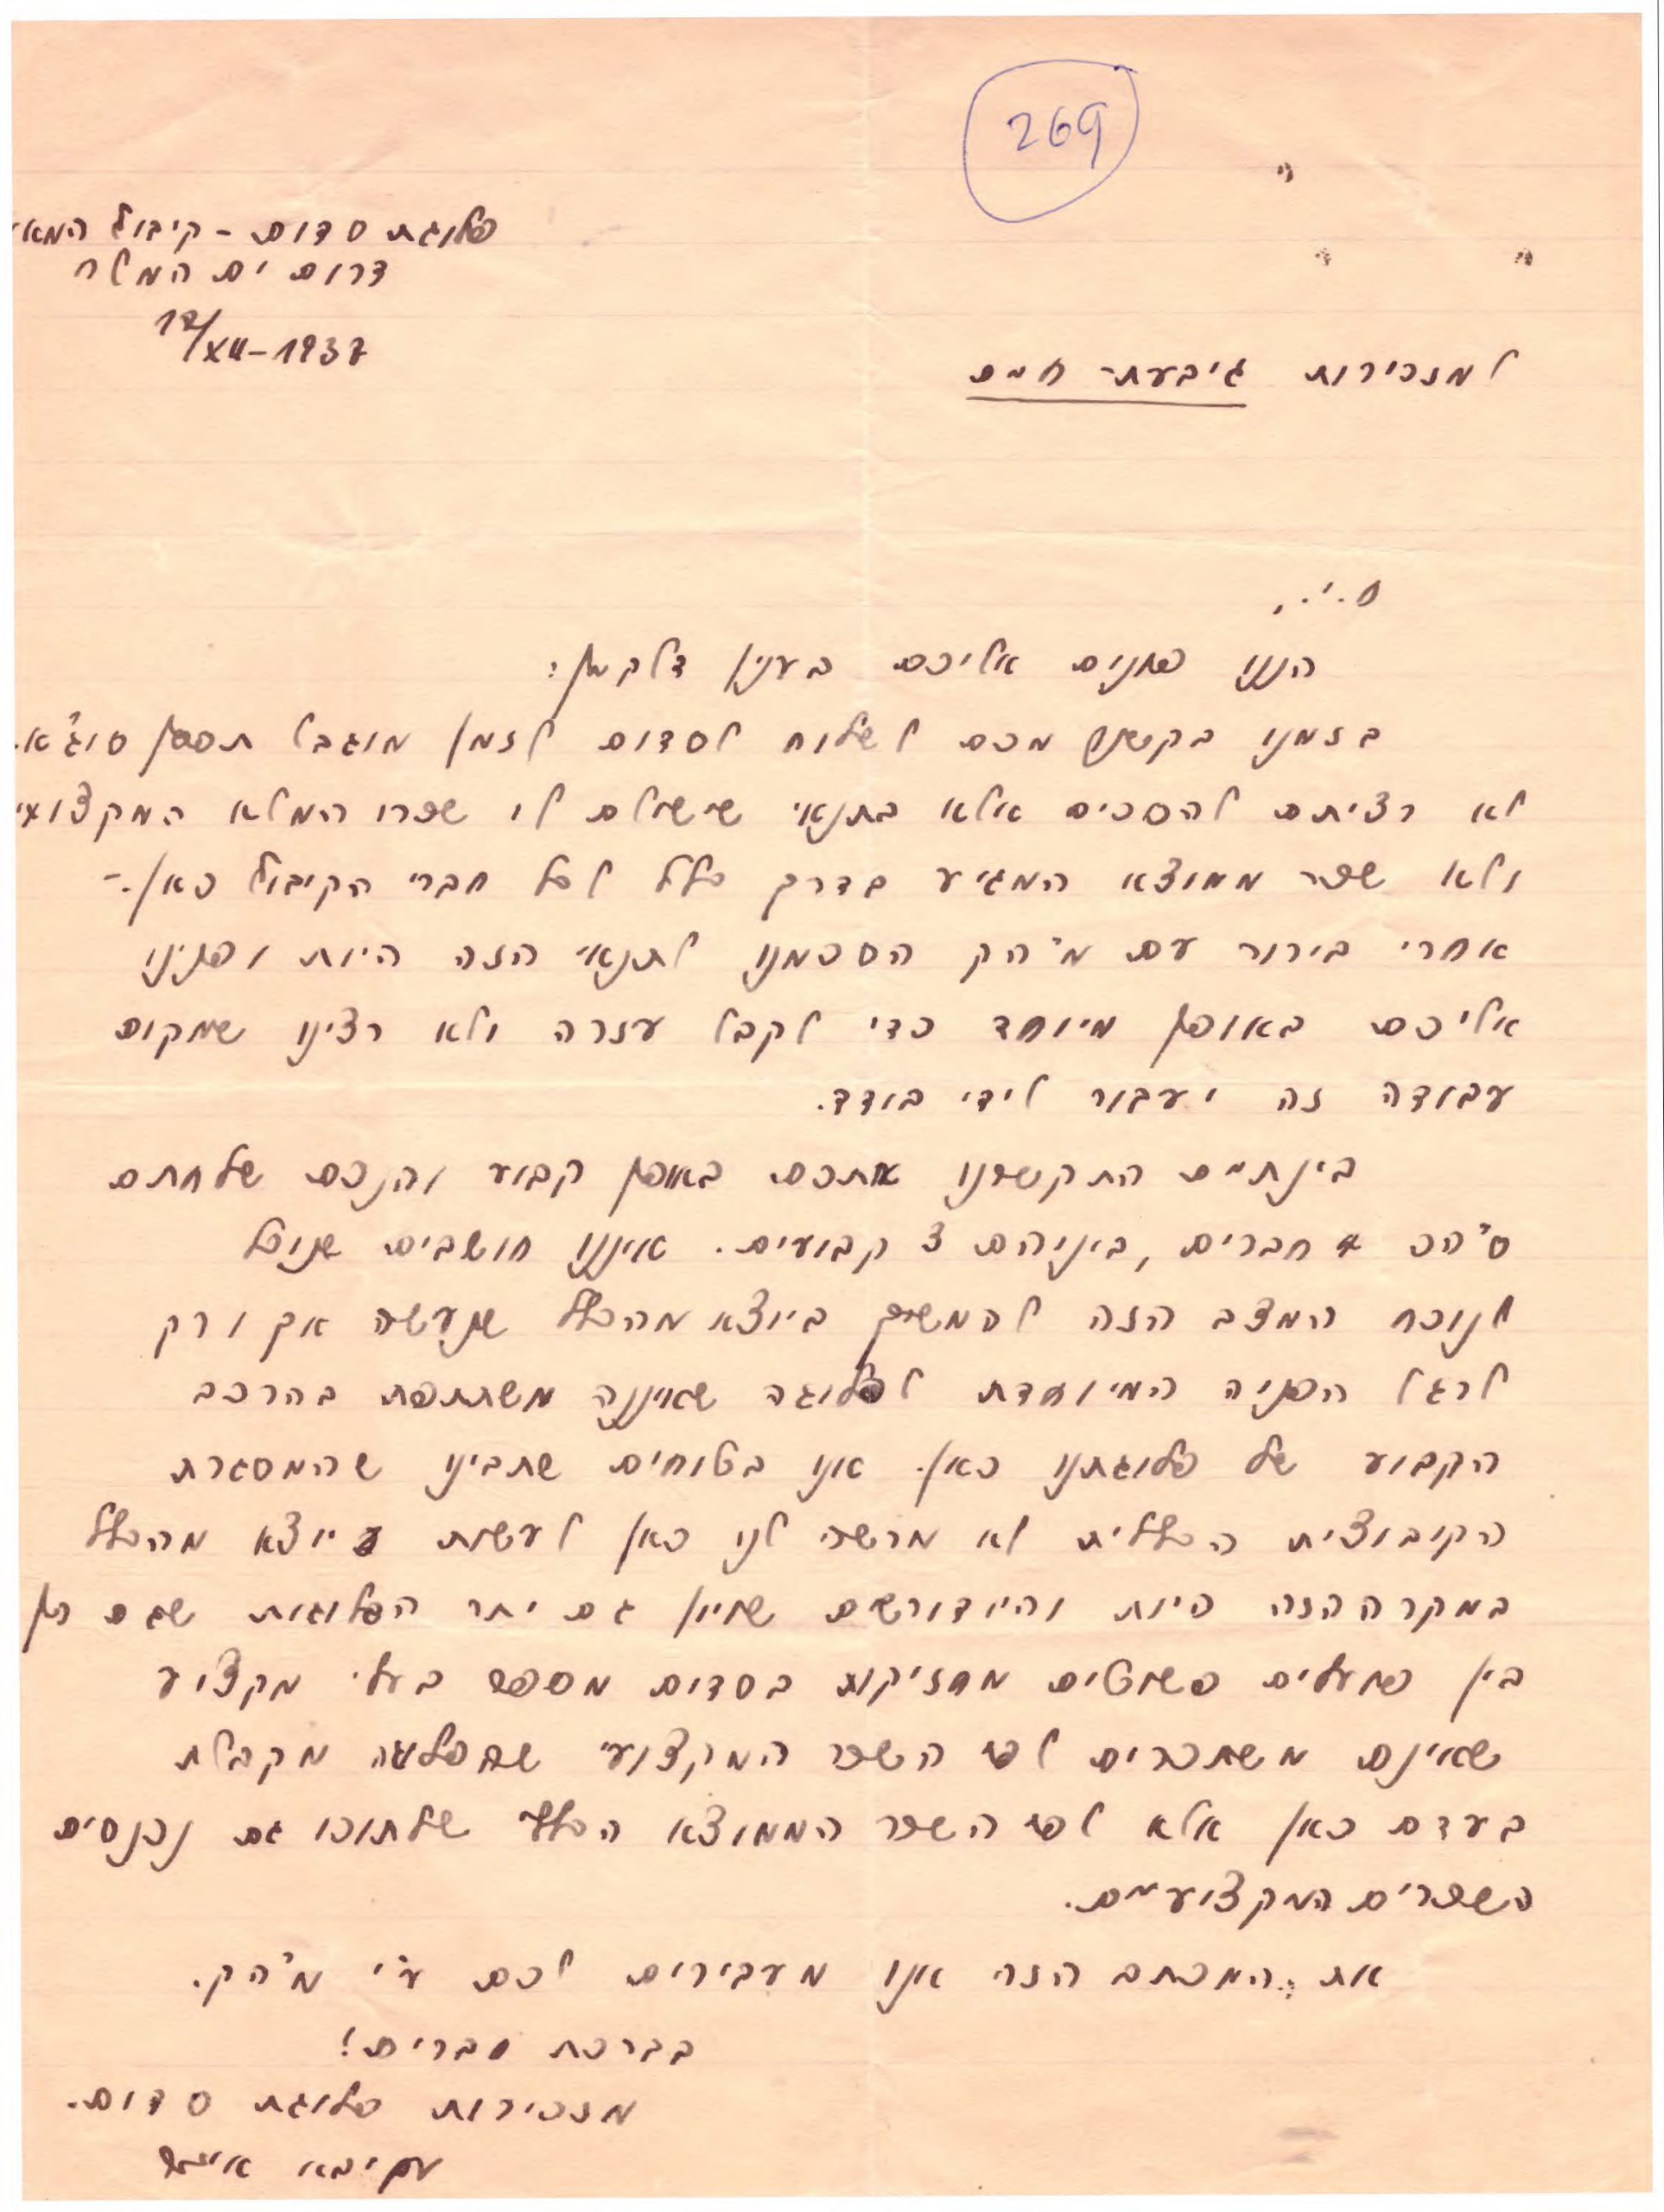 269
פלוגת סדום - קיבוץ המאו
דרום ים המלח
17/XII-1937
למזכירות גיבעת-חיים
ח.י.,
הננו פונים אליכם בענין דלקמן:
בזמנו בקשנו מכם לשלוח לסדום לזמן מוגבל תספן סוג א'.
לא רציתם להסכים אלא בתנאי שישולם לו שכרו המלא המקצועי
ולא שכר ממוצא המגיע בדרך כלל לכל חברי הקיבוץ כאן.-
אחרי בירור עם מ"הק הסכמנו לתנאי הזה היות ופנינו
אליכם באופן מיוחד כדי לקבל עזרה ולא רצינו שמקום
עבודה זה יעבור לידי בודד.
בינתיים התקשרנו אתכם באופן קבוע והנכם שלחתם
ס"הכ 4 חברים, ביניהם 3 קבועים. איננו חושבים שנוכל
לנוכח המצב הזה להמשיך ביוצא מהכלל שנעשה אך ורק
לרגל הפניה המיוחדת לפלוגה שאיננה משתתפת בהרכב
הקבוע של פלוגתנו כאן. אנו בטוחים שתבינו שהמסגרת
הקיבוצית הכללית לא מרשה לנו כאן לעשות יוצא מהכלל
במקרה הזה היות והיו דורשים שויון גם יתר הפלוגות שגם הן
בין פועלים פשוטים מחזיקות בסדום מספר בעלי מקצוע
שאינם משתכרים לפי השכר המקצועי שהפלוגה מקבלת
בעדם כאן אלא לפי השכר הממוצא הכללי שלתוכו גם נכנסים
השכרים המקצועיים.
את המכתב הזה אנו מעבירים לכם ע"י מ"הק.
בברכת חברים!
מזכירות פלוגת סדום.
עקיבא